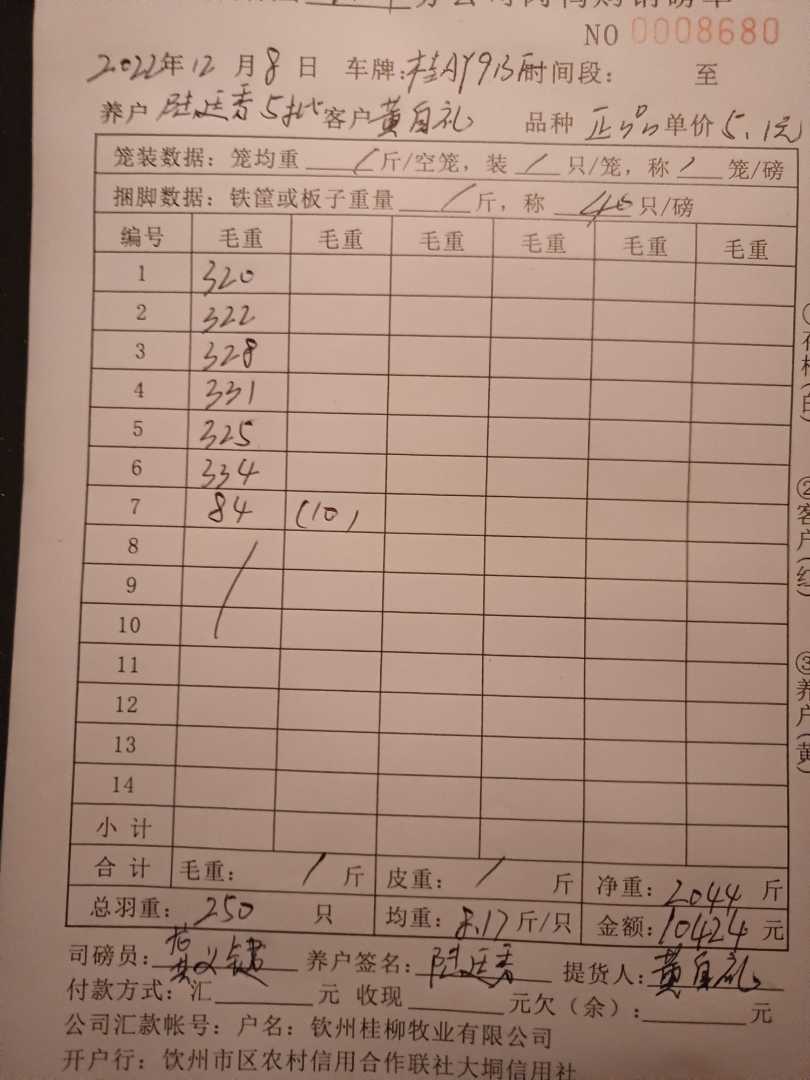 分公司肉鸭购销磅单
NO 0008680
2022年12月8日 车牌:桂AY913 时间段: 至
养户 陆廷秀 5批 客户 黄自礼 品种 正品 单价 5.1元
笼装数据: 笼均重 / 斤/空笼, 装 / 只/笼, 称 / 笼/磅
捆脚数据: 铁筐或板子重量 / 斤, 称 40 只/磅
编号 毛重 毛重 毛重 毛重 毛重 毛重
1 320
2 322
3 328
4 331
5 325
6 334
7 84 (10)
8
9
10
11
12
13
14
小计
合计 毛重: / 斤 皮重: / 斤 净重: 2044 斤
总羽重: 250 只 均重: 8.17 斤/只 金额: 10424 元
司磅员: 养户签名: 陆廷秀 提货人: 黄自礼
付款方式: 汇 元 收现 元欠(余): 元
公司汇款帐号: 户名: 钦州桂柳牧业有限公司
开户行: 钦州市区农村信用合作联社大垌信用社
②客户(红)
③养户(黄)